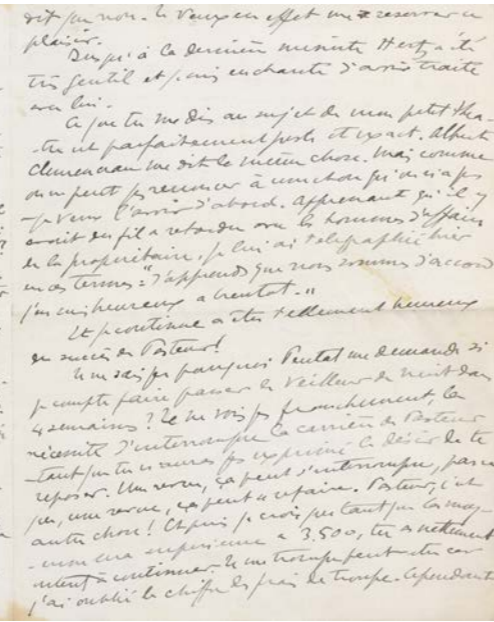 dit que non. Je veux en effet me réserver ce
plaisir.
Jusqu'à la dernière minute Hertz a été
très gentil et je suis enchanté d'avoir traité
avec lui.
Ce que tu me dis au sujet de mon petit théa-
-tre est parfaitement juste et exact. Albert
Clemenceau me dit la même chose. Mais comme
on ne peut pas renoncer à une chose qu'on n'a pas
- je veux l'avoir d'abord. Apprenant qu'il y
avait du fil à retordre avec les hommes d'affaires
de la propriétaire, je lui ai télégraphié hier
en ces termes: "J'apprends que nous sommes d'accord
j'en suis heureux à bientôt."
Et je continue à être tellement heureux
du succès de Pasteur!
Je ne sais pas pourquoi me demande si
je compte faire passer le Veilleur de nuit dans
4 semaines? Je ne vois pas franchement, la
nécessité d'interrompre la carrière de Pasteur
-tant que tu n'auras pas exprimé le désir de te
reposer. Une revue, ça peut s'interrompre, pas
une revue, ça peut se refaire. Pasteur, c'est
autre chose! Et puis je crois que tant que la moy-
-enne sera supérieure à 3.500, tu as nettement
intérêt à continuer. Je me trompe peut-être car
j'ai oublié le chiffre des frais de troupe. Cependant